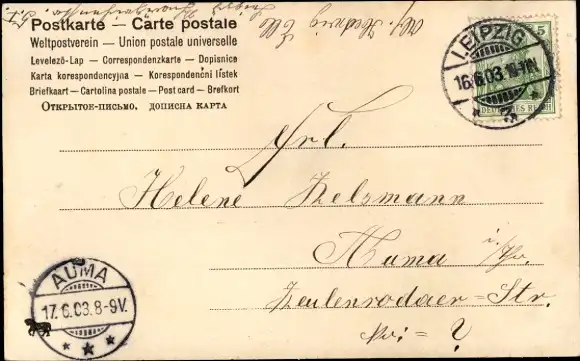 Postkarte — Carte postale
Weltpostverein — Union postale universelle
Levelező-Lap — Correspondenzkarte — Dopisnice
Karta korespondencyjna — Korespondenční lístek
Briefkaart — Cartolina postale — Post card — Brefkort
Открытое-письмо. дописна карта
LEIPZIG
16.6.03.
5
DEUTSCHES REICH
Frl.
Helene
Auma i. Th.
Zeulenrodaer=Str.
No: = ?
AUMA
17.6.03.8-9V.